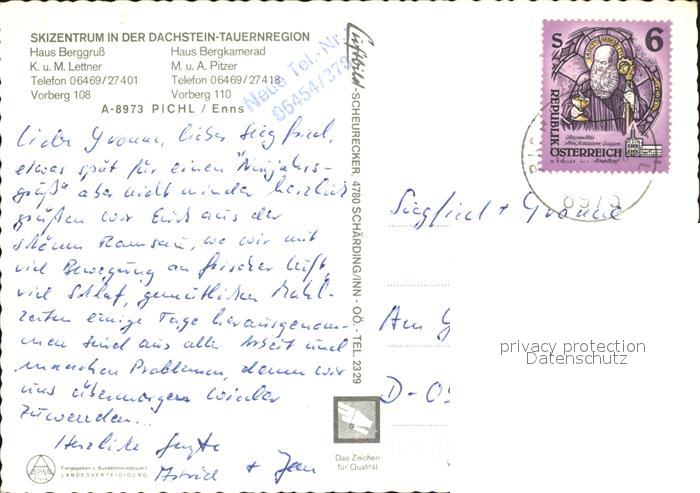 SKIZENTRUM IN DER DACHSTEIN-TAUERNREGION
Haus Berggruß Haus Bergkamerad
K. u. M. Lettner M. u. A. Pitzer
Telefon 06469/27401 Telefon 06469/27418
Vorberg 108 Vorberg 110
A-8973 PICHL / Enns
Neue Tel.-Nr.
06454/378
Liebe Yvonne, lieber Siegfried,
etwas spät für einen "Neujahrs-
gruß" aber nicht minder herzlich
grüßen wir Euch aus der
schönen Ramsau, wo wir mit
viel Bewegung an frischer Luft,
viel Schlaf, gemütlichen Mahl-
zeiten einige Tage herausgenom-
men sind aus aller Arbeit und
manchen Problemen, denen wir
uns übermorgen wieder
zuwenden...
Herzliche Grüße
Astrid +
ALPINA
Freigegeben v. Bundesministerium f.
LANDESVERTEIDIGUNG
Luftbild-SCHEURECKER, 4780 SCHÄRDING/INN - OÖ. - TEL. 2329
Das Zeichen
für Qualität
S 6
REPUBLIK
ÖSTERREICH
8973
Siegfried + Yvonne
Am G
D-09
privacy protection
Datenschutz